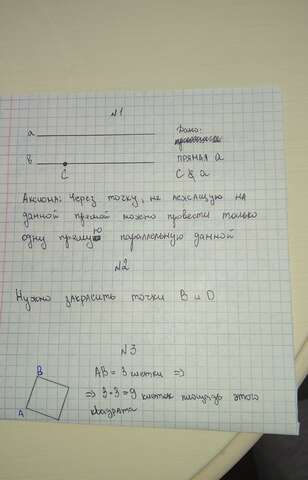 №1
a
Дано:
прямая a
b
C
C ∉ a
Аксиома: Через точку, не лежащую на
данной прямой можно провести только
одну прямую параллельную данной
№2
Нужно закрасить точки B и D
№3
B
AB = 3 клетки ⇒
⇒ 3·3=9 клеток площадь этого
A
квадрата